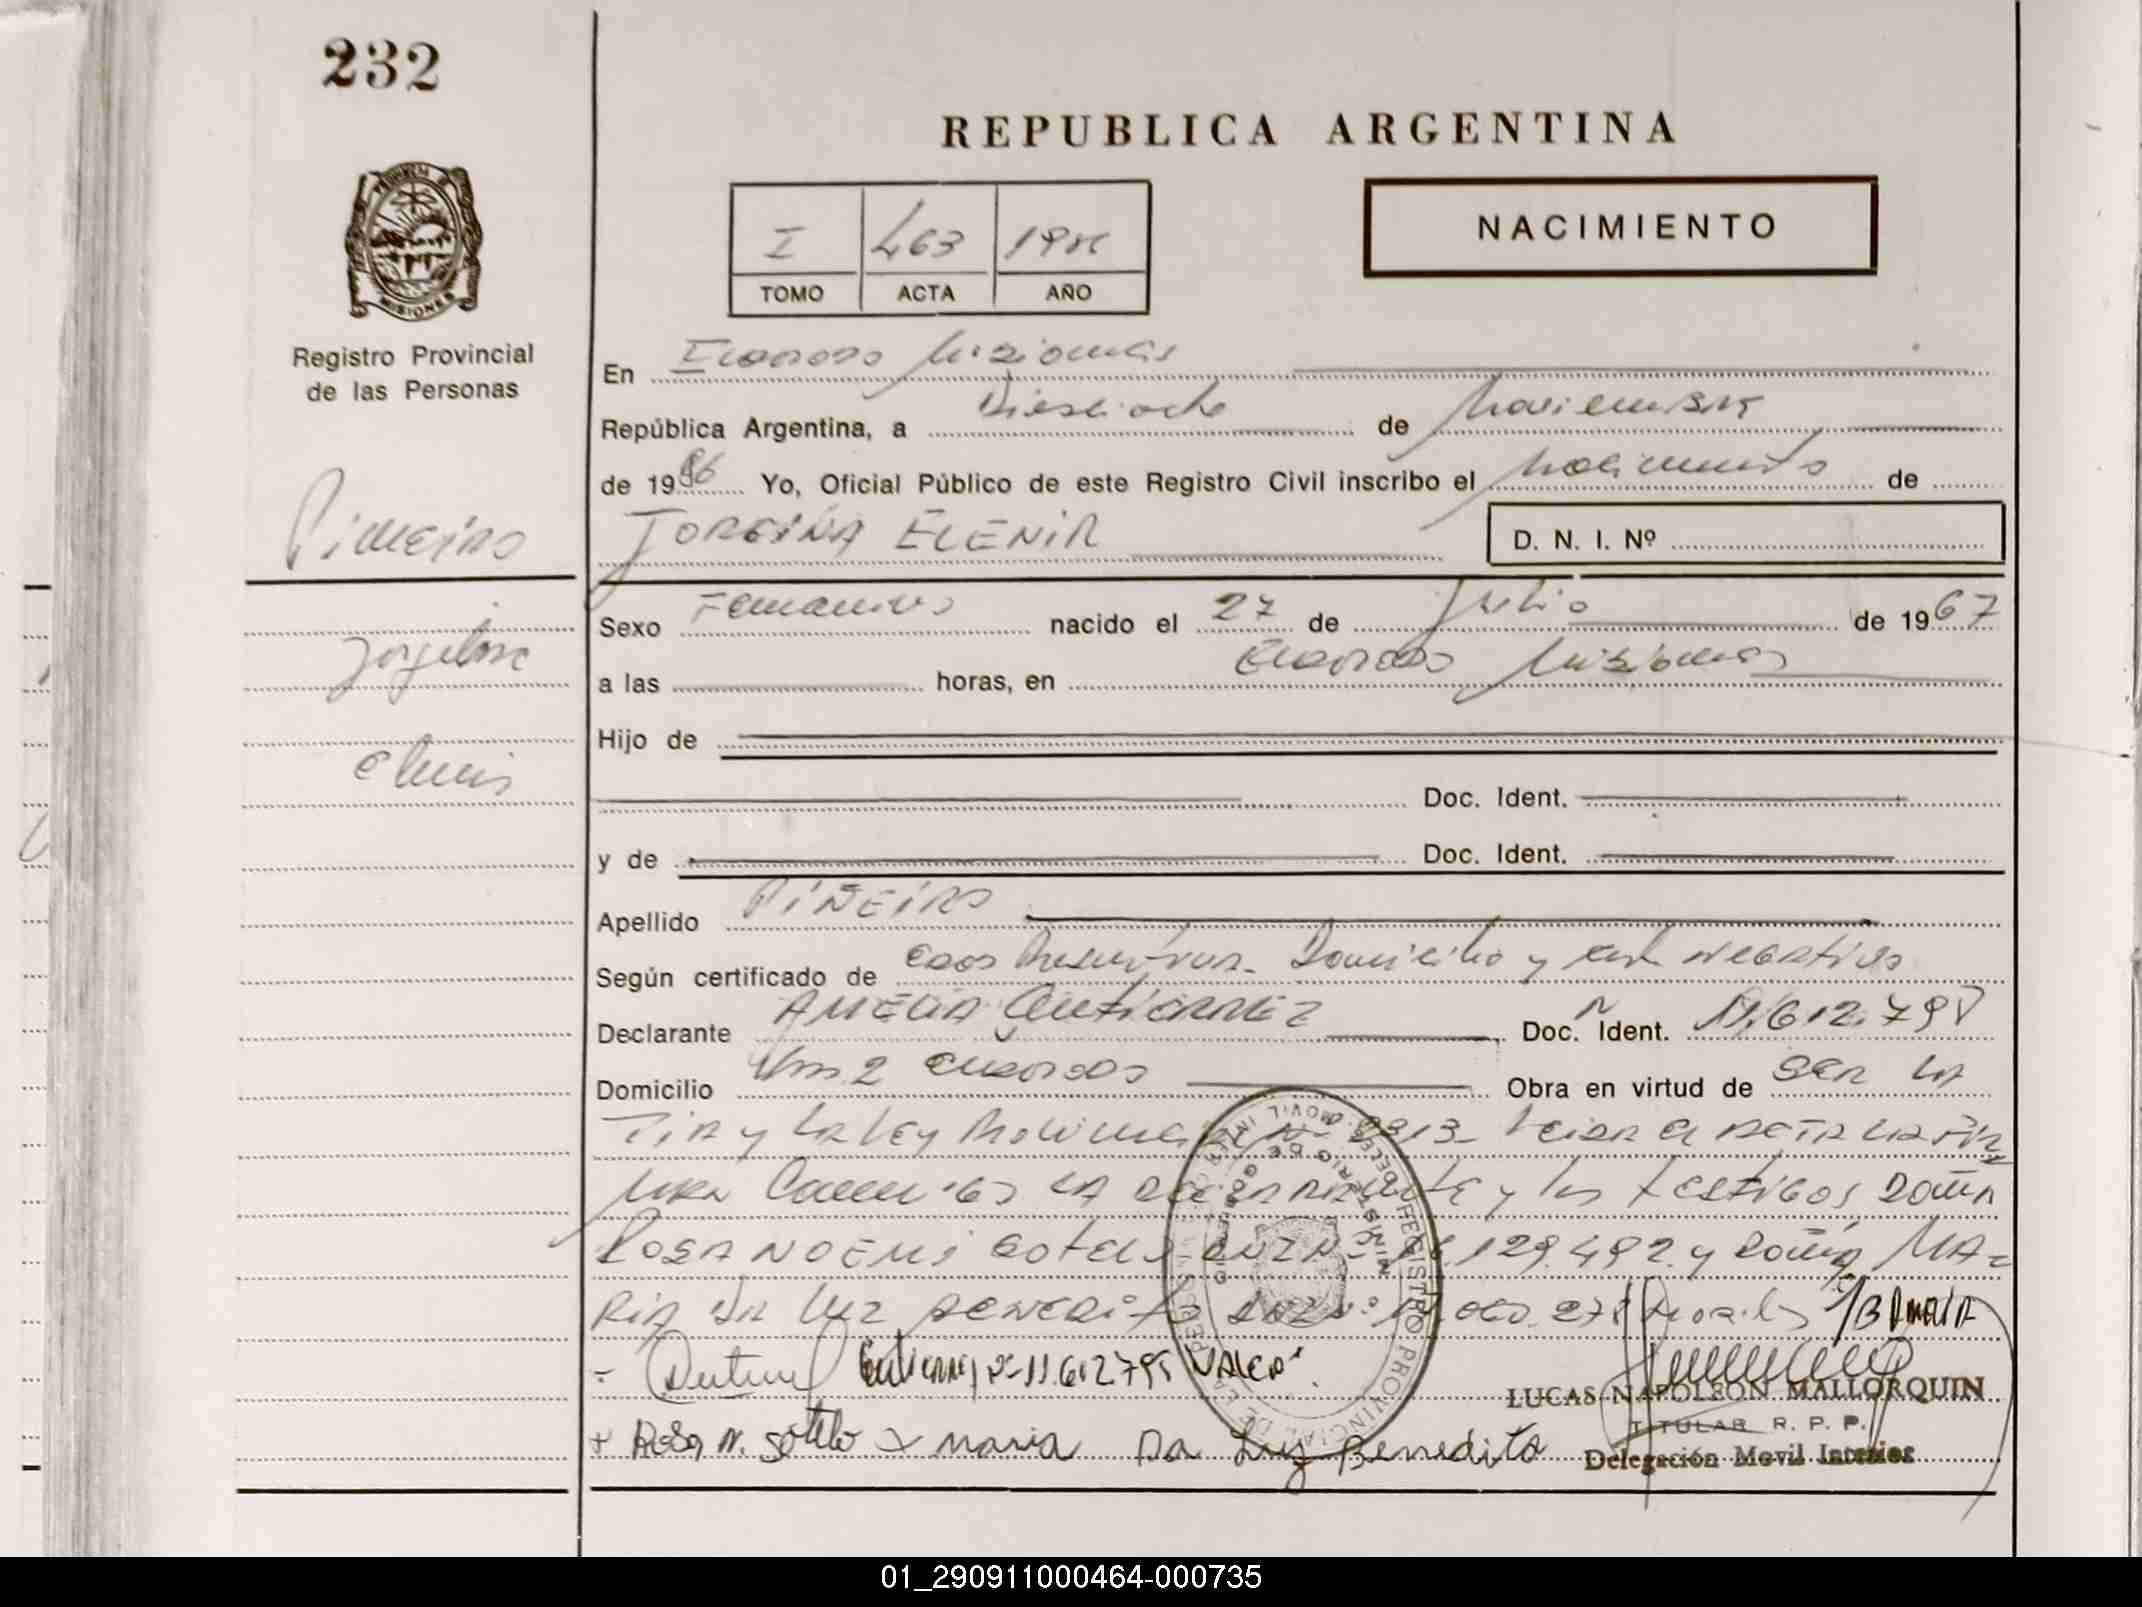 232
REPUBLICA ARGENTINA
NACIMIENTO
I 463 1986
TOMO ACTA AÑO
PROVINCIA DE MISIONES
Registro Provincial
de las Personas
En Eldorado Misiones
República Argentina, a Dieciocho de Noviembre
de 1986 Yo, Oficial Público de este Registro Civil inscribo el Nacimiento de
Piñeiro
ELENIR
D. N. I. Nº
Sexo Femenino nacido el 27 de Julio de 1967
a las horas, en Eldorado Misiones
Hijo de
Doc. Ident.
y de Doc. Ident.
Apellido PIÑEIRO
Según certificado de Domicilio y NEGATIVO
Declarante AMELIA GUTIERREZ Doc. Ident. 11.612.795
Domicilio Km 2 Eldorado Obra en virtud de SER LA
TIA y la Ley Provincial Leida el ACTA LA FIR
MAN LA DECLARANTE y los TESTIGOS DOÑA
ROSA NOEMI SOTELO 129.492 y DOÑA MA-
RIA DA LUZ BENEDITO
Gutierrez 11612795 VALE
+ Rosa N. Sotelo x maria Da Luz Benedito
LUCAS NAPOLEON MALLORQUIN
TITULAR R. P. P.
Delegación Movil Interior
01_290911000464-000735